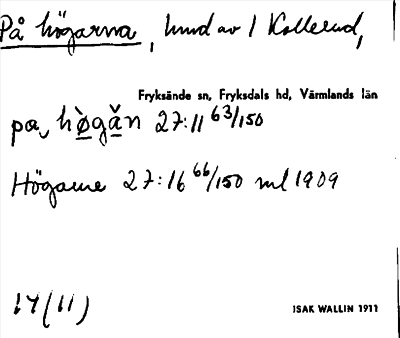 På högarna, hmd av 1 Kollerud,
Fryksände sn, Fryksdals hd, Värmlands län
pa, hø̀gǎn 27:11 63/150
Högarne 27:16 66/150 ml 1909
14 (11)
ISAK WALLIN 1911